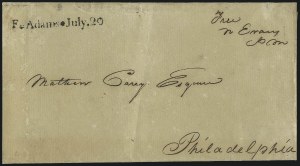 Ft. Adams July, 20
Free
W Evans
P M
Mathew Carey Esquire
Philadelphia